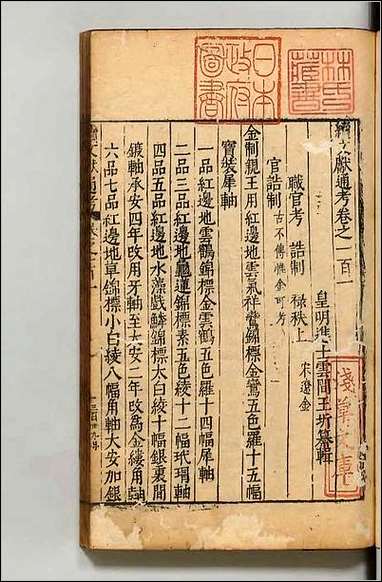 續文獻通考卷之一百一
皇明進士雲間王圻纂輯
職官考 誥制 祿秩上
宋遼金
官誥制 古不傳惟金可考
金制親王用紅邊地雲氣祥鸞錦標金鸞五色羅十五幅
寶裝犀軸
一品紅邊地雲鶴錦標金雲鶴五色羅十四幅犀軸
二品三品紅邊地龜蓮錦標素五色綾十二幅玳瑁軸
四品五品紅邊地水藻戲鱗錦標大白綾十幅銀裏間
鍍軸承安四年改用牙軸至大安二年改爲金縷角軸
六品七品紅邊地草錦標小白綾八幅角軸大安加銀
續文獻通考
日本政府圖書
林氏藏書
淺草文庫